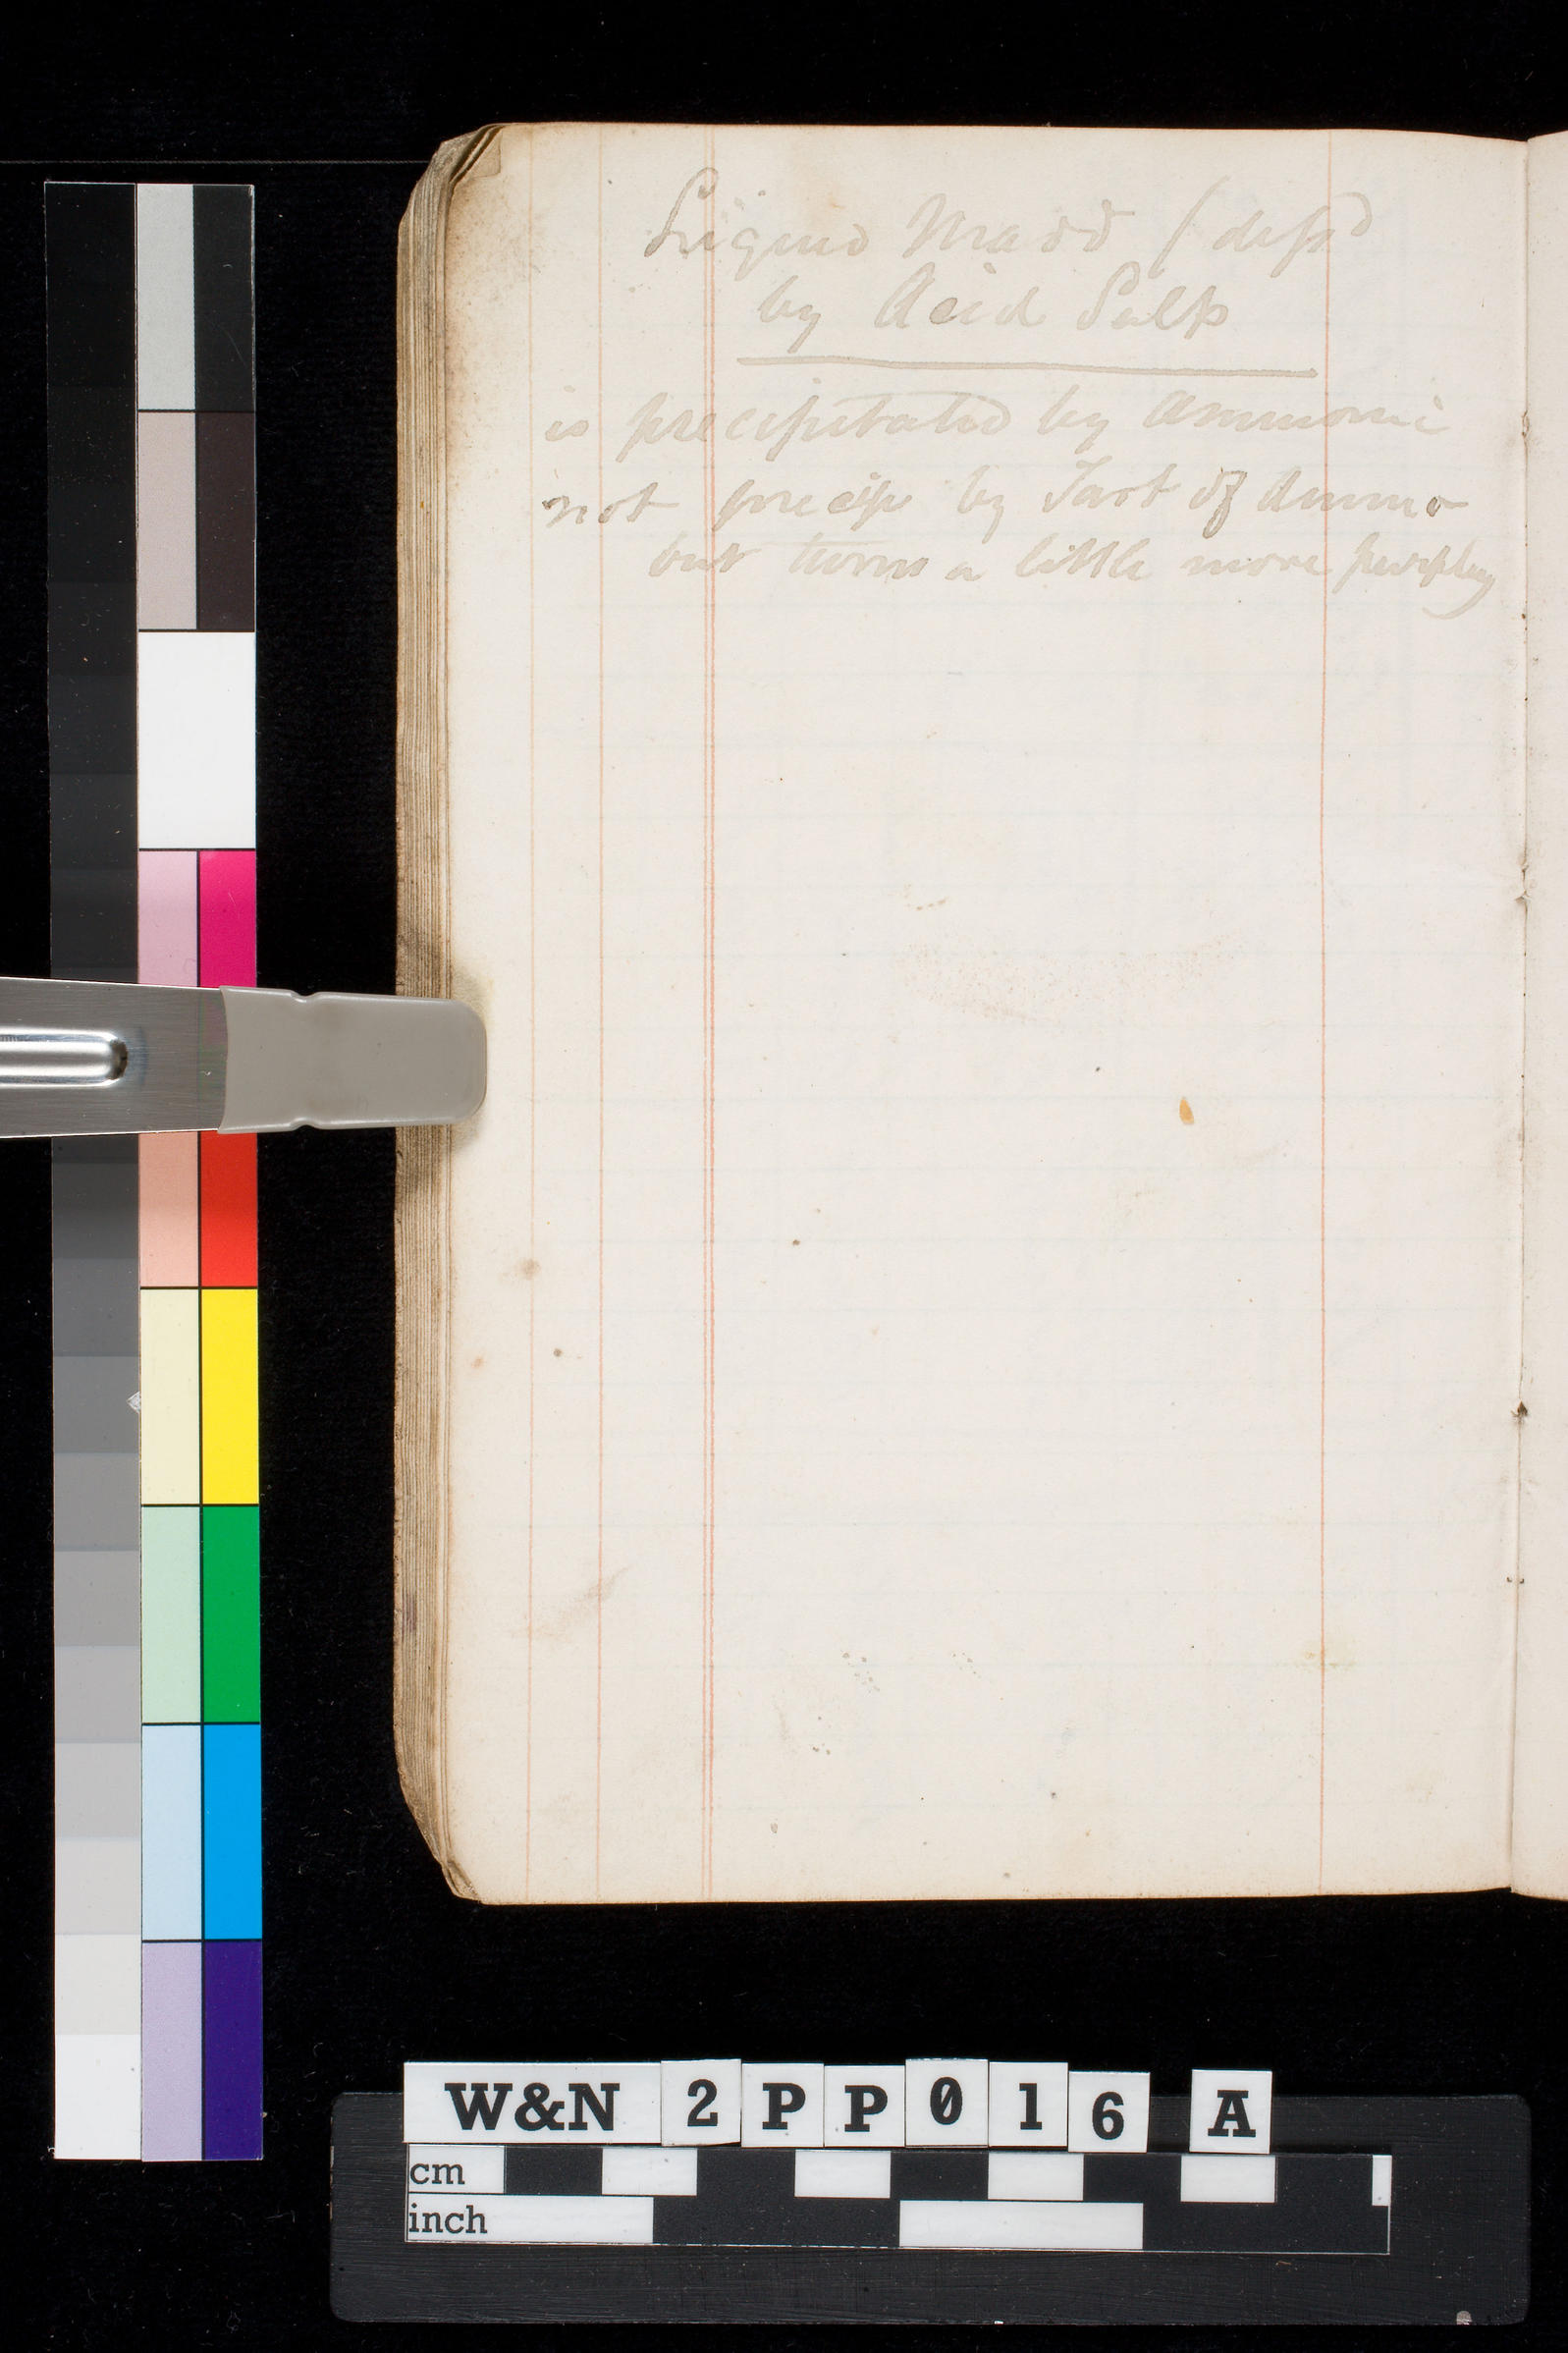 Liquid Madd (diss^d
by Acid Sulp
is precipitated by Ammoni
not precip by Tart of Ammo
but turns a little more purpley
W&N 2PP016 A
cm
inch